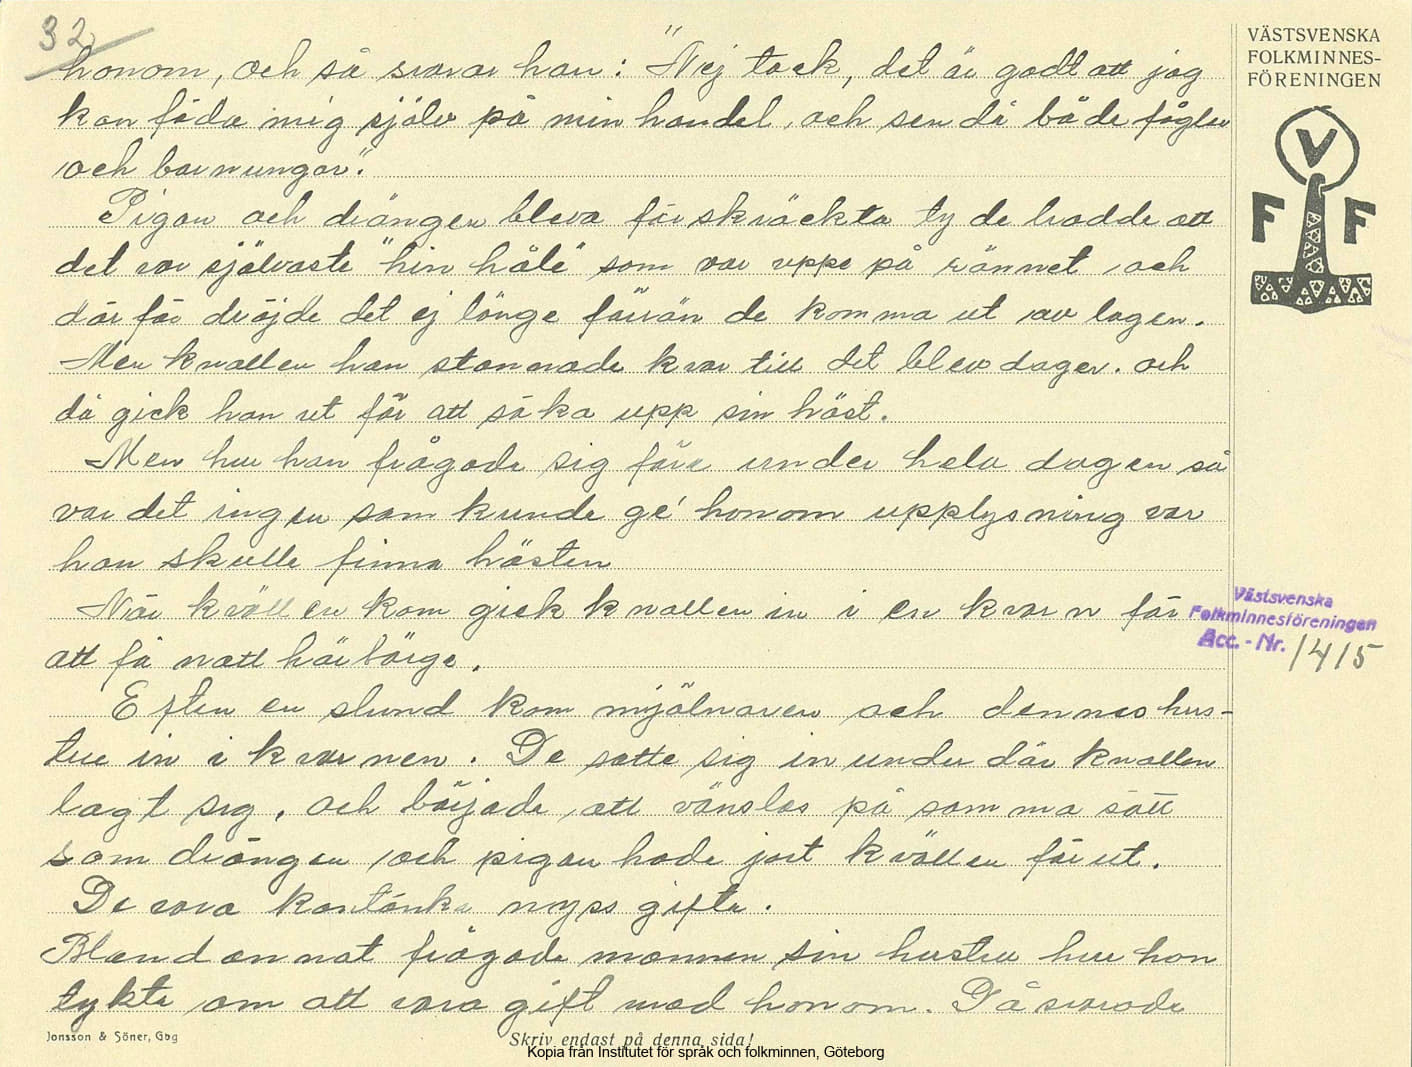 32
honom, och så svarar han: "Nej tack, det är godt att jag
kan föda mig själv på min handel, och sen då både fåglar
och barnungar."
Pigan och drängen bleva förskräckta ty de trodde att
det var självaste "hin håle" som var uppe på rännet, och
därför dröjde det ej länge förrän de komma ut av lagen.
Men knallen han stannade kvar till det blev dager. och
då gick han ut för att söka upp sin häst.
Men hur han frågade sig före under hela dagen så
var det ingen som kunde ge' honom upplysning var
han skulle finna hästen
När kvällen kom gick knallen in i en kvarn för
att få natt härbärge.
Efter en stund kom mjölnaren och dennes hus-
tru in i kvarnen. De satte sig in under där knallen
lagt sig, och började att vänslas på samma sätt
som drängen och pigan hade jort kvällen förut.
De vara kantänka nyss gifta.
Bland annat frågade mannen sin hustru hur hon
tykte om att vara gift med honom. Då svarade
VÄSTSVENSKA
FOLKMINNES-
FÖRENINGEN
V
F F
Västsvenska
Folkminnesföreningen
Acc. - Nr. 1415
Jonsson & Söner, Gbg
Skriv endast på denna sida!
Kopia från Institutet för språk och folkminnen, Göteborg